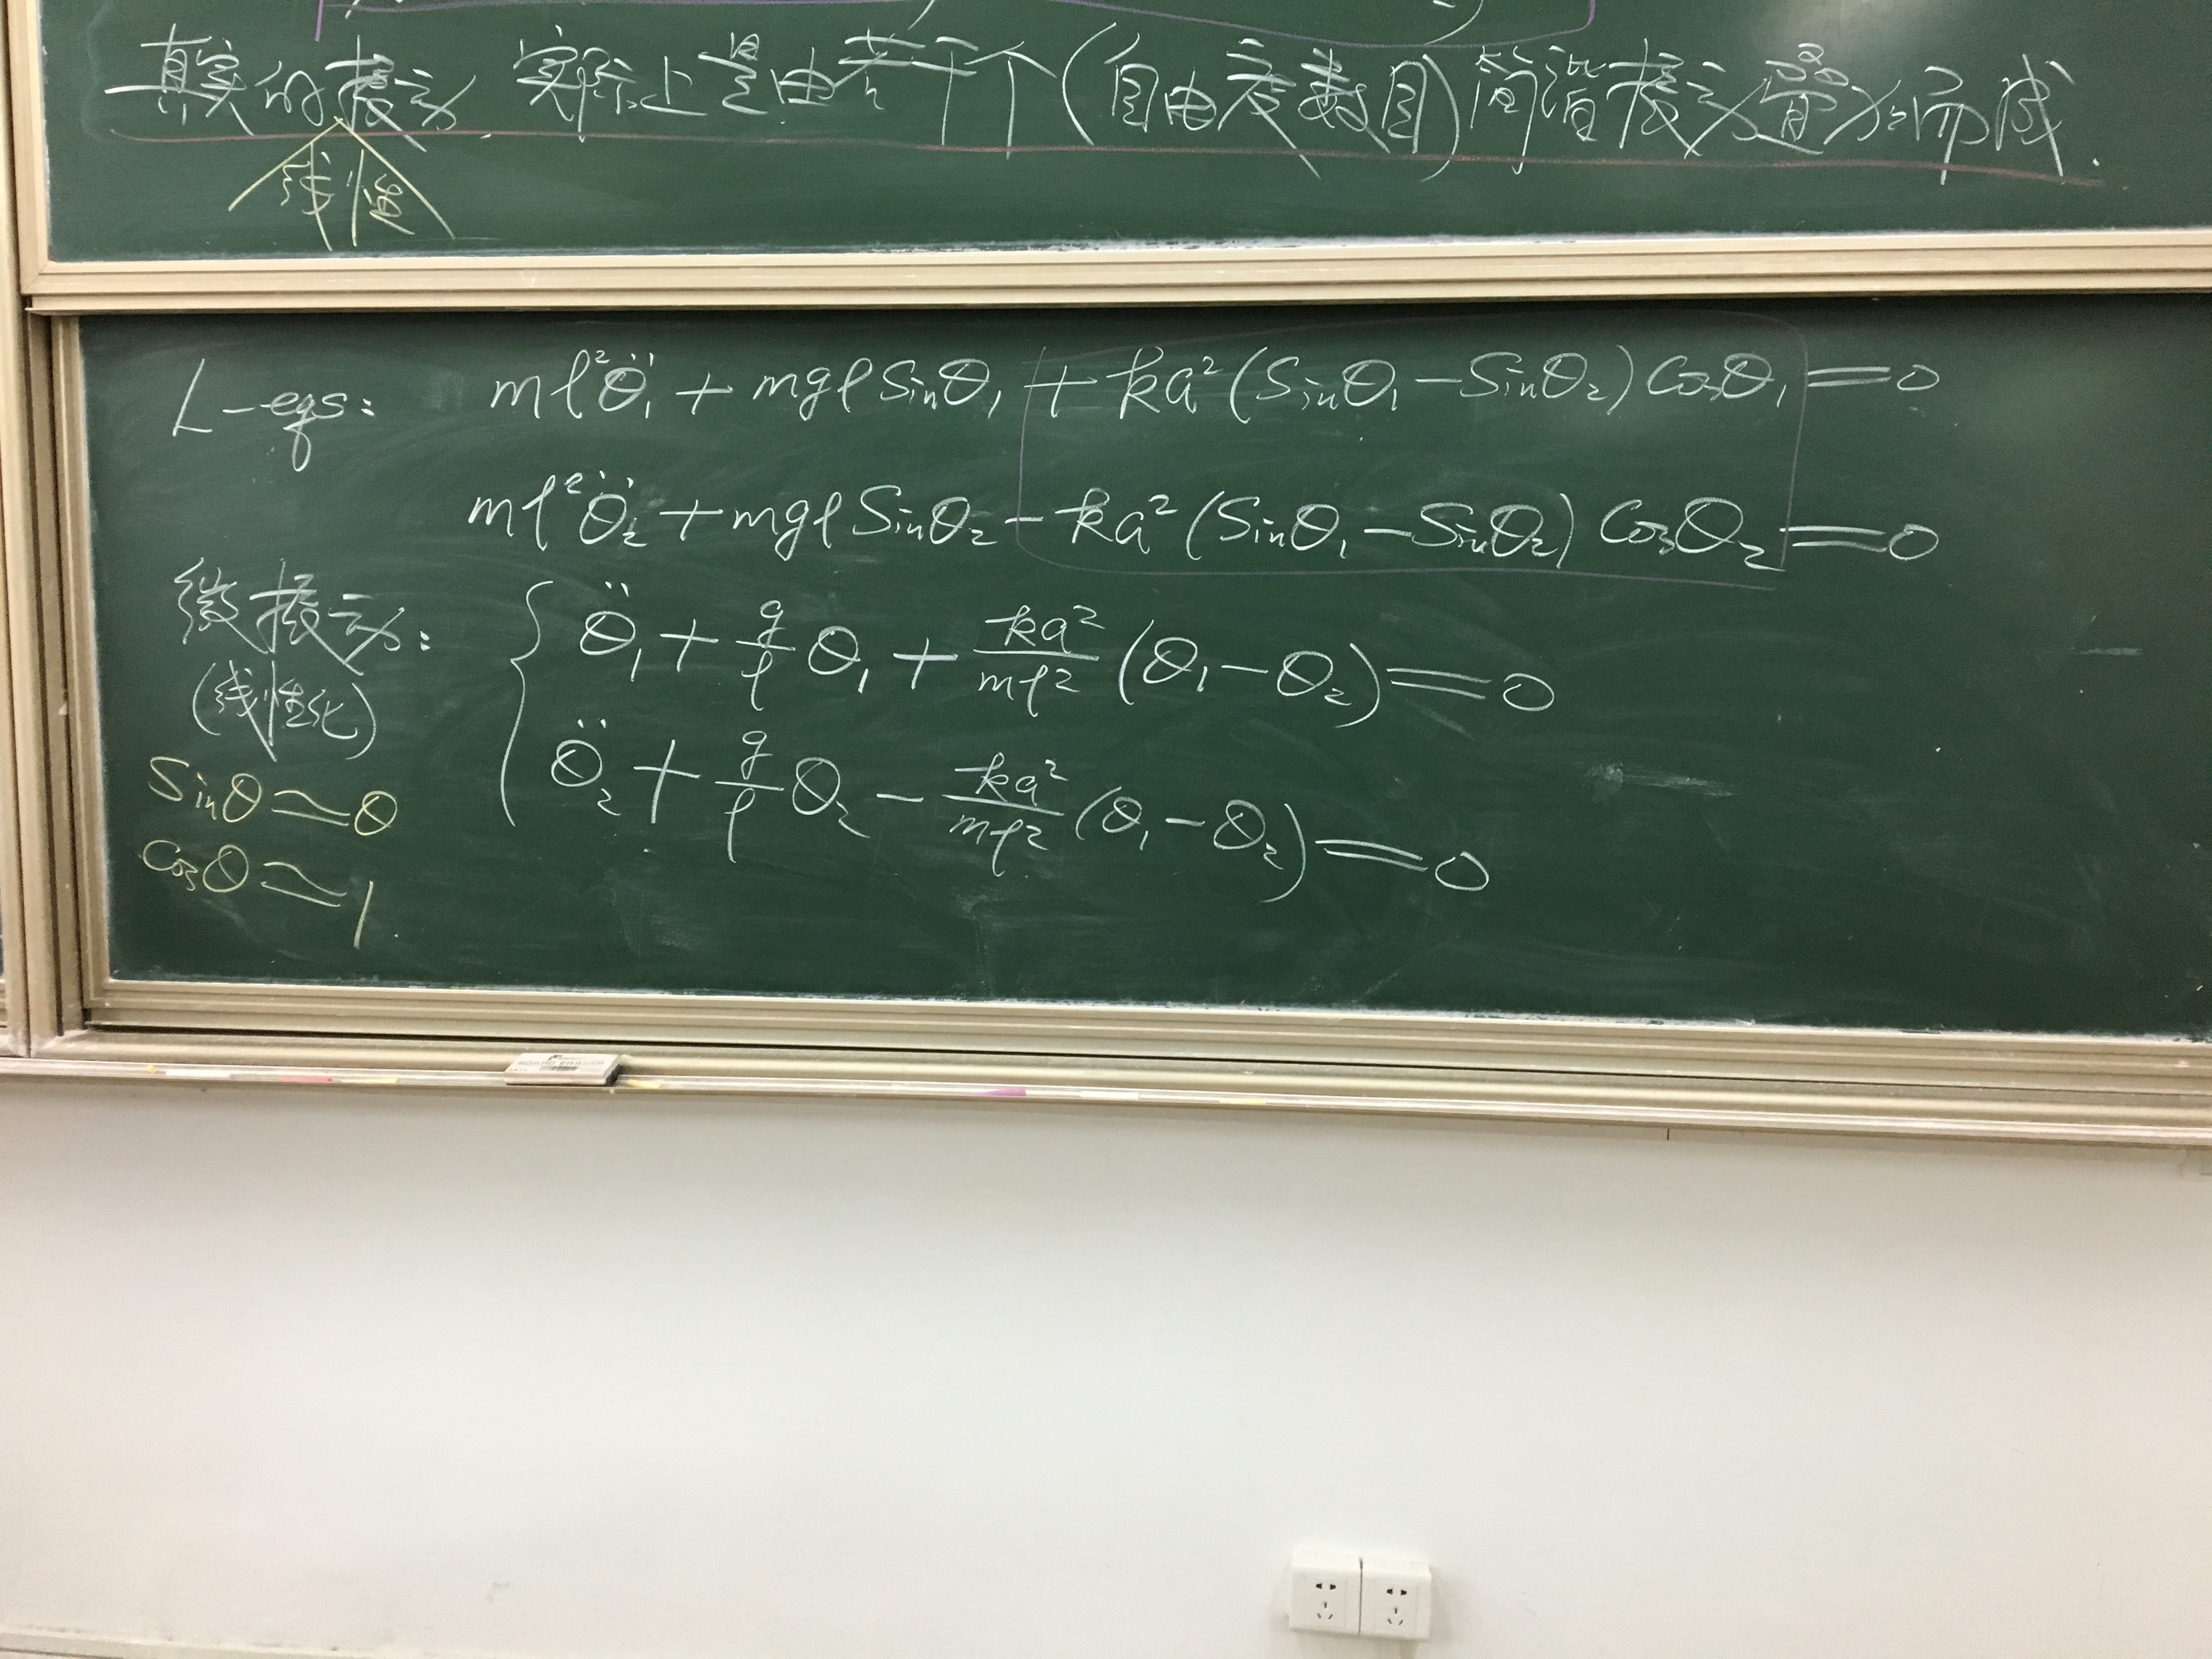 真实的振动 实际上是由若干个(自由度数目)简谐振动叠加而成.
线性
L-eqs: ml²θ̈₁ + mgl Sinθ₁ + ka²(Sinθ₁ - Sinθ₂) Cosθ₁ = 0
ml²θ̈₂ + mgl Sinθ₂ - ka²(Sinθ₁ - Sinθ₂) Cosθ₂ = 0
微振动: θ̈₁ + g/l θ₁ + ka²/ml² (θ₁ - θ₂) = 0
(线性化)
θ̈₂ + g/l θ₂ - ka²/ml² (θ₁ - θ₂) = 0
Sinθ ≃ θ
Cosθ ≃ 1